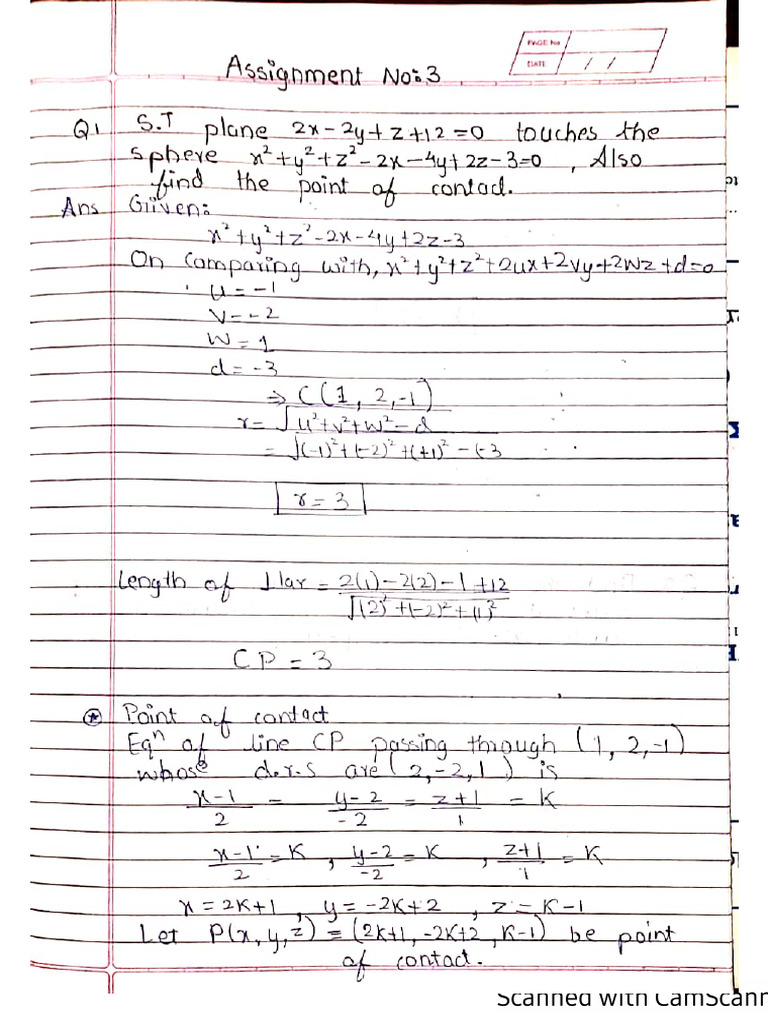 PAGE No
DATE / /
Assignment No:3
Q1 S.T plane 2x-2y+z+12=0 touches the
sphere x²+y²+z²-2x-4y+2z-3=0, Also
find the point of contact.
Ans Given:
x²+y²+z²-2x-4y+2z-3
On Comparing with, x²+y²+z²+2ux+2vy+2wz+d=0
u = -1
v = -2
w = 1
d = -3
⇒ C(1, 2, -1)
r = √u²+v²+w²-d
= √(-1)²+(-2)²+(+1)²-(-3
r = 3
Length of ⊥lar = 2(1)-2(2)-1+12
√(2)²+(-2)²+(1)²
CP = 3
* Point of contact
Eqⁿ of line CP passing through (1, 2, -1)
whose d.r.s are (2, -2, 1) is
x-1 = y-2 = z+1 = K
2 -2 1
x-1 = K, y-2 = K, z+1 = K
2 -2 1
x = 2K+1, y = -2K+2, z = K-1
Let P(x, y, z) = (2K+1, -2K+2, K-1) be point
of contact.
Scanned with CamScann